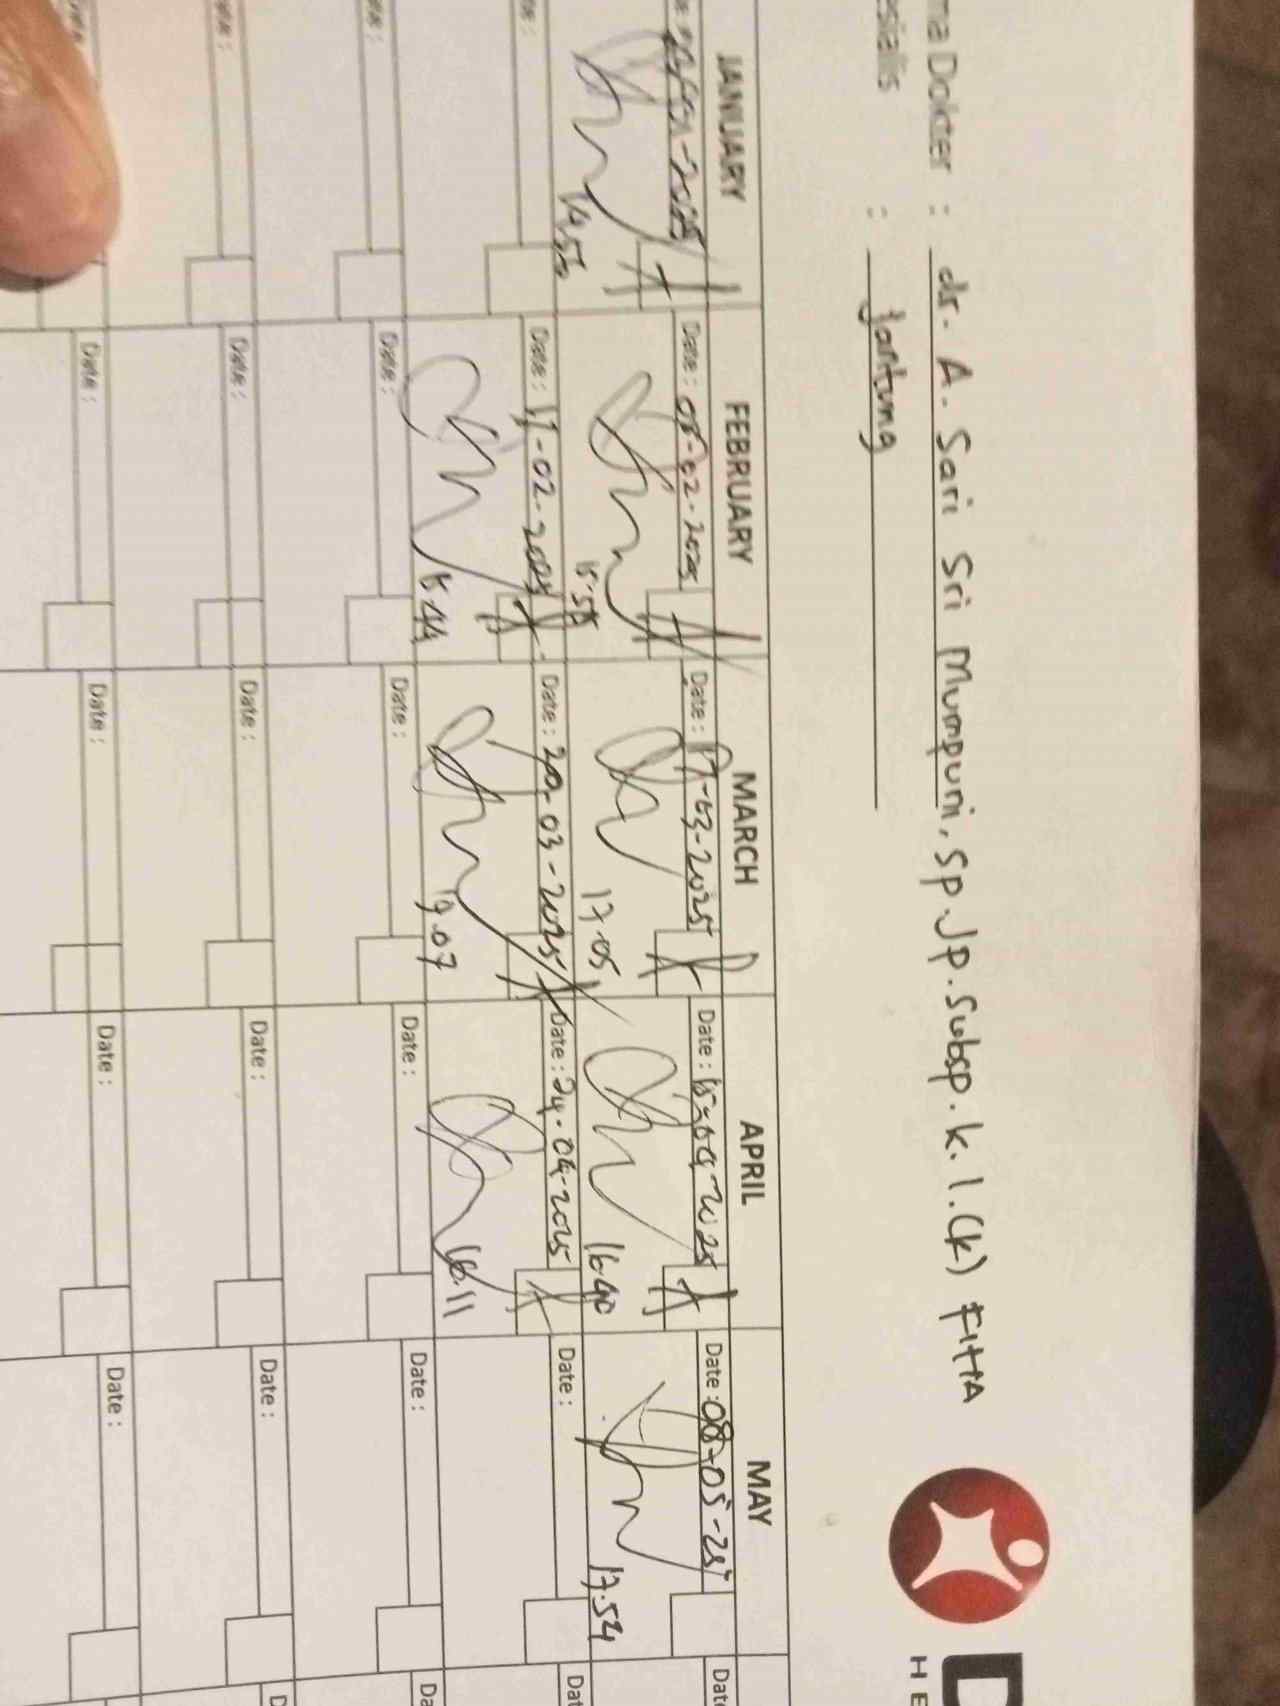 ma Dokter : dr. A. Sari Sri Mumpuni, Sp.Jp.Subsp.k.l.(k) FIHA
esialis : Jantung
D
HE
JANUARY FEBRUARY MARCH APRIL MAY
-2025 Date : 08-02-2025 Date : 17-03-2025 Date : 15-04-2025 Date : 08-05-25 Date
17.05 16.40 17.54
Date : 17-02-2025 Date : 20-03-2025 Date : 24-04-2025 Date : Dat
15.44 19.07 16.11
Date : Date : Date : Date : Da
Date : Date : Date : Date : D
Date : Date : Date : Date :